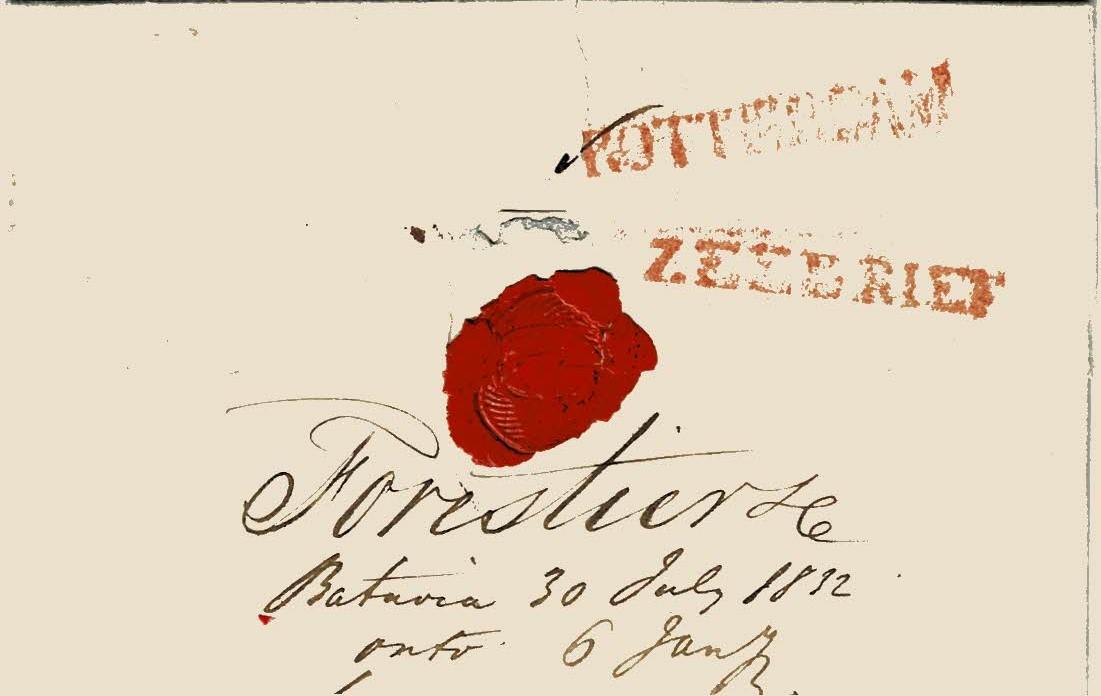 ROTTERDAM
ZEEBRIEF
Forestier &c
Batavia 30 July 1832
ontv 6 Jany